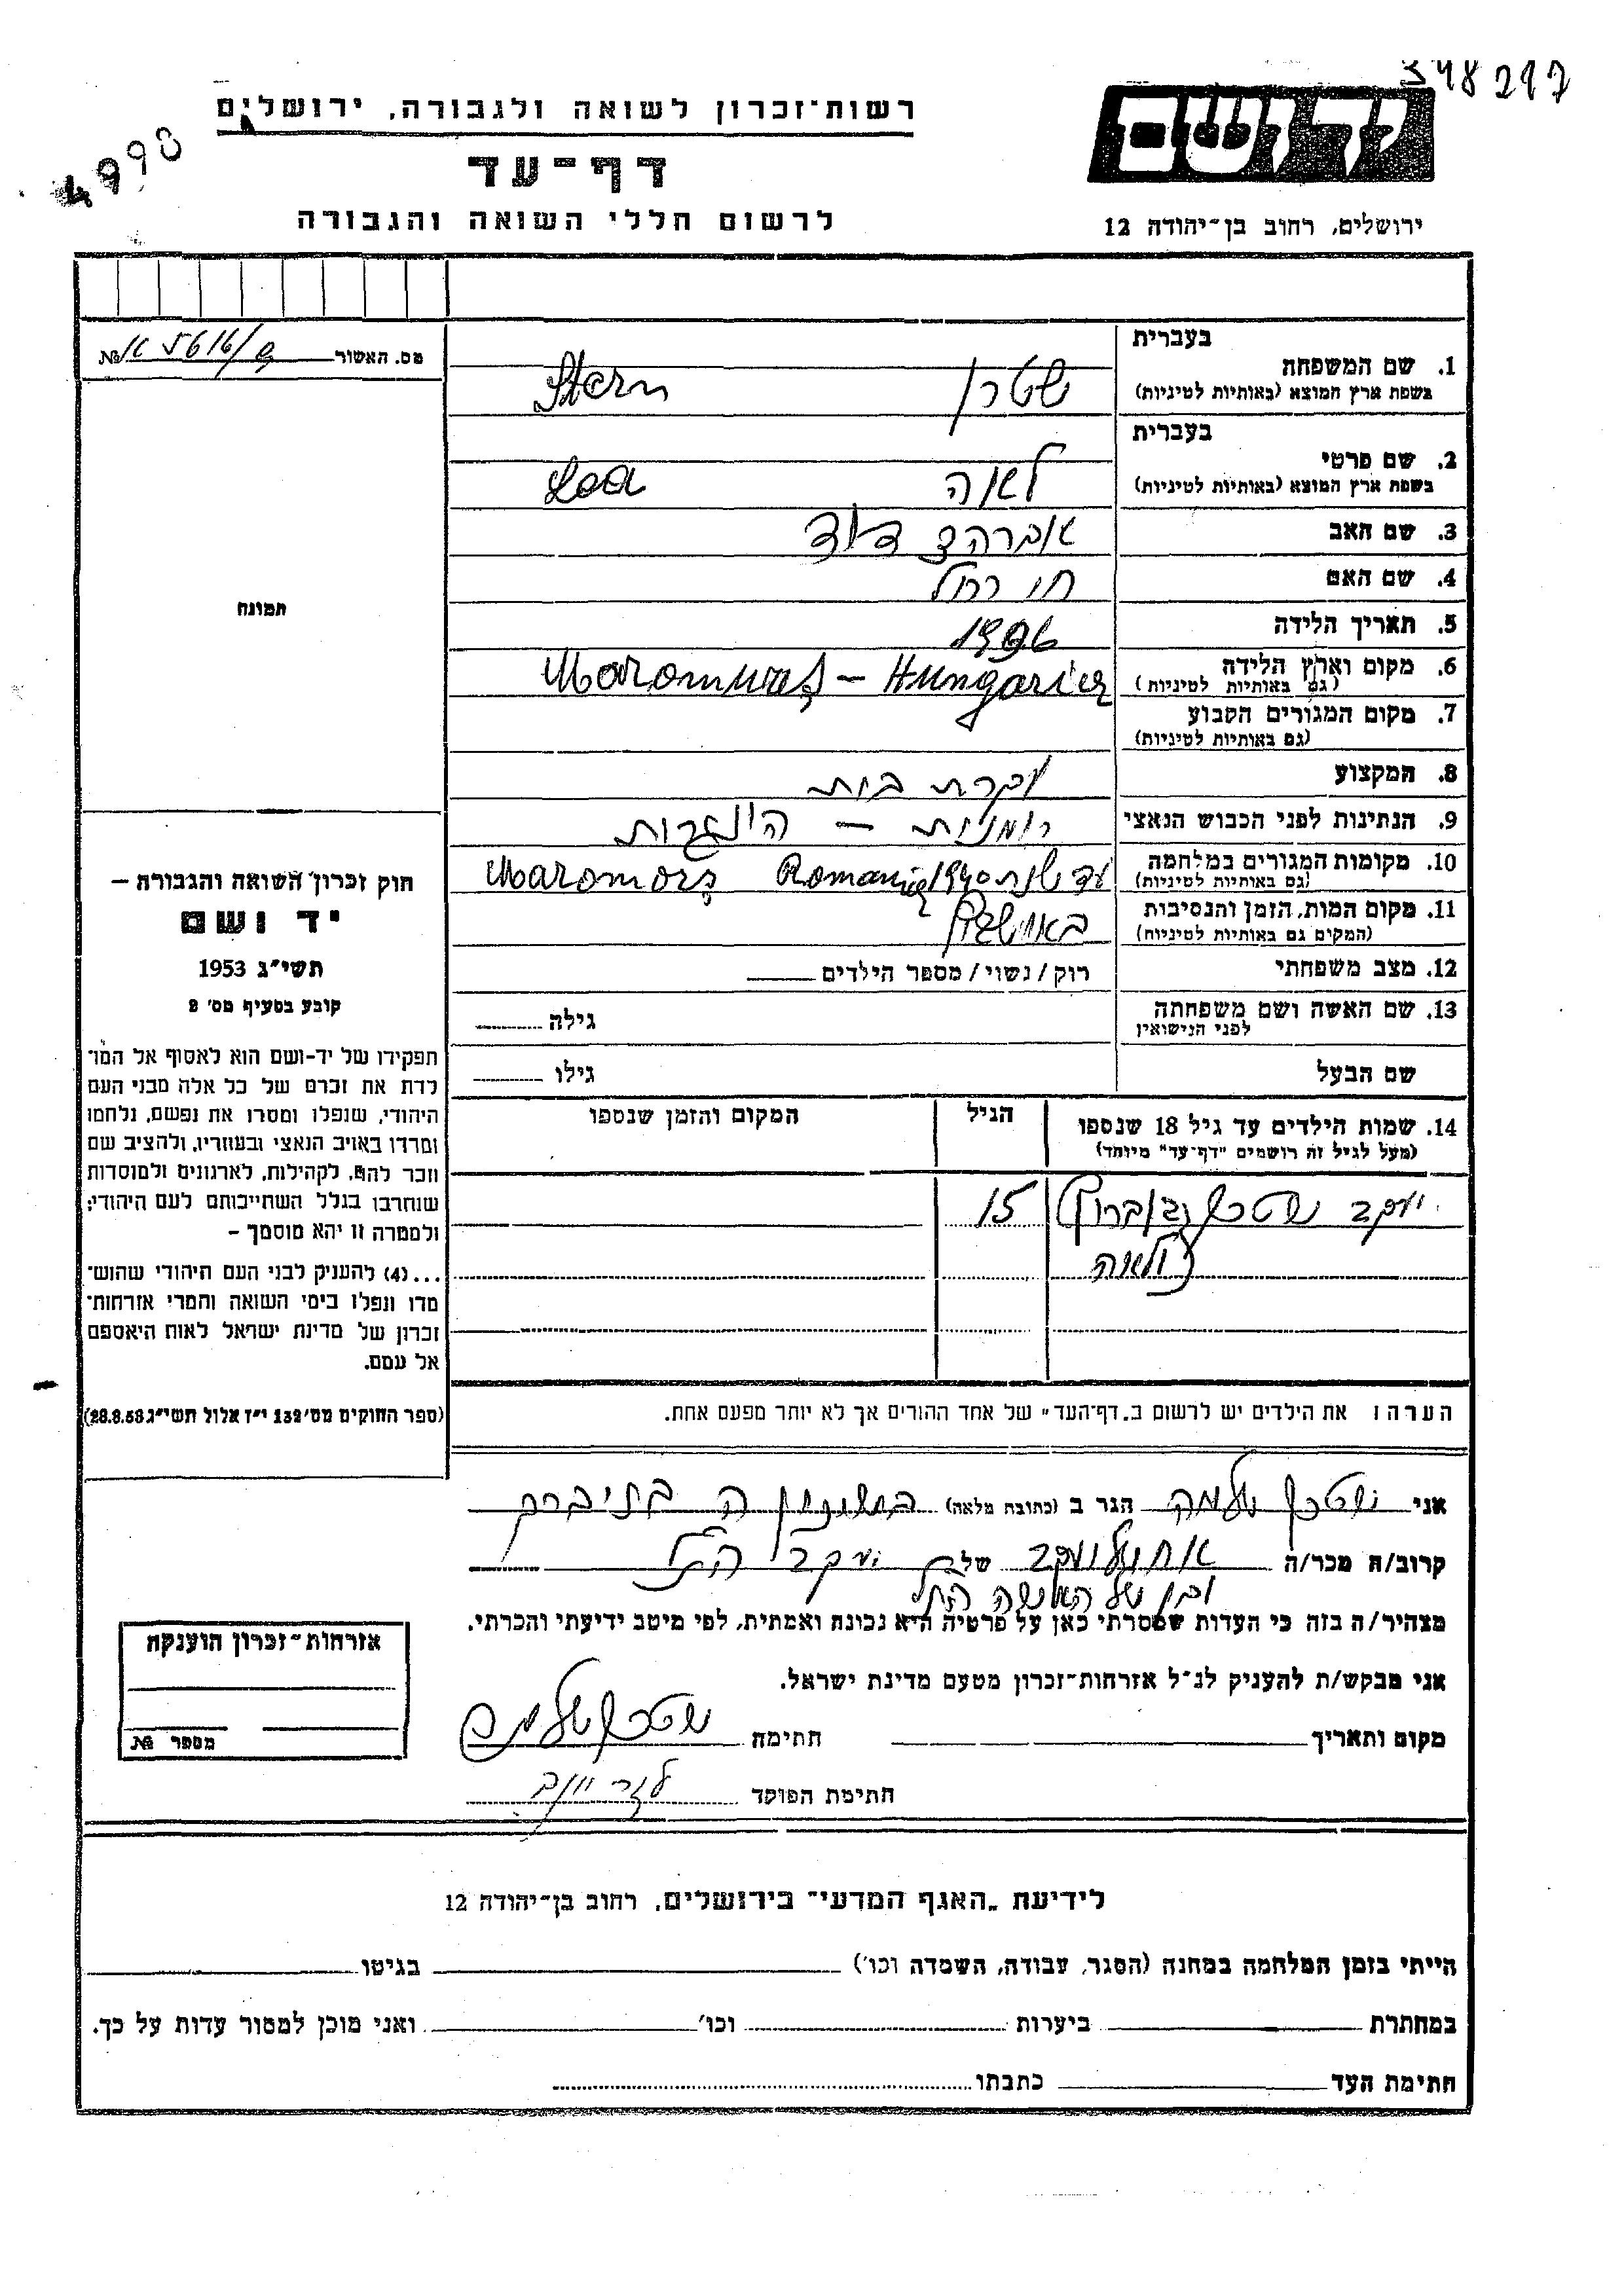 348217
4990
רשות־זכרון לשואה ולגבורה, ירושלים
דף־עד
לרשום חללי השואה והגבורה
יד ושם
ירושלים, רחוב בן־יהודה 12
מס. האשור №
בעברית
1. שם המשפחה
בשפת ארץ המוצא (באותיות לטיניות)
שטרן Stern
בעברית
2. שם פרטי
בשפת ארץ המוצא (באותיות לטיניות)
לאה Lea
3. שם האב אברהם דוד
4. שם האם חי רחל
5. תאריך הלידה
6. מקום וארץ הלידה
(גם באותיות לטיניות)
7. מקום המגורים הקבוע
(גם באותיות לטיניות)
8. המקצוע עקרת בית
9. הנתינות לפני הכבוש הנאצי רומנית – הונגרית
10. מקומות המגורים במלחמה עד שנת 1940 Romania
(גם באותיות לטיניות)
11. מקום המות, הזמן והנסיבות
(המקום גם באותיות לטיניות)
12. מצב משפחתי רוק/נשוי/מספר הילדים
13. שם האשה ושם משפחתה גילה
לפני הנישואין
שם הבעל גילו
14. שמות הילדים עד גיל 18 שנספו הגיל המקום והזמן שנספו
(מעל לגיל זה רושמים "דף־עד" מיוחד)
יעקב שטרן 15
ולאה
תמונה
חוק זכרון השואה והגבורה –
יד ושם
תשי״ג 1953
קובע בסעיף מס׳ 2
תפקידו של יד-ושם הוא לאסוף אל המו־
לדת את זכרם של כל אלה מבני העם
היהודי, שנפלו ומסרו את נפשם, נלחמו
ומרדו באויב הנאצי ובעוזריו, ולהציב שם
וזכר להם, לקהילות, לארגונים ולמוסדות
שנחרבו בגלל השתייכותם לעם היהודי;
ולמטרה זו יהא מוסמך –
...(4) להעניק לבני העם היהודי שהוש־
מדו ונפלו בימי השואה והמרי אזרחות־
זכרון של מדינת ישראל לאות היאספם
אל עמם.
(ספר החוקים מס׳ 132 י״ז אלול תשי״ג 28.8.53)
הערה: את הילדים יש לרשום ב„דף־העד״ של אחד ההורים אך לא יותר מפעם אחת.
אני שטרן שלמה הגר ב (כתובת מלאה) בני ברק
קרוב/ה מכר/ה של יעקב הנ״ל
ובן של האשה הנ״ל
מצהיר/ה בזה כי העדות שמסרתי כאן על פרטיה היא נכונה ואמתית, לפי מיטב ידיעתי והכרתי.
אני מבקש/ת להעניק לנ״ל אזרחות־זכרון מטעם מדינת ישראל.
מקום ותאריך חתימה שטרן שלמה
חתימת הפוקד
אזרחות־זכרון הוענקה
מספר №
לידיעת „האגף המדעי״ בירושלים, רחוב בן־יהודה 12
הייתי בזמן המלחמה במחנה (הסגר, עבודה, השמדה וכו׳) בגיטו
במחתרת ביערות וכו׳ ואני מוכן למסור עדות על כך.
חתימת העד כתבתו